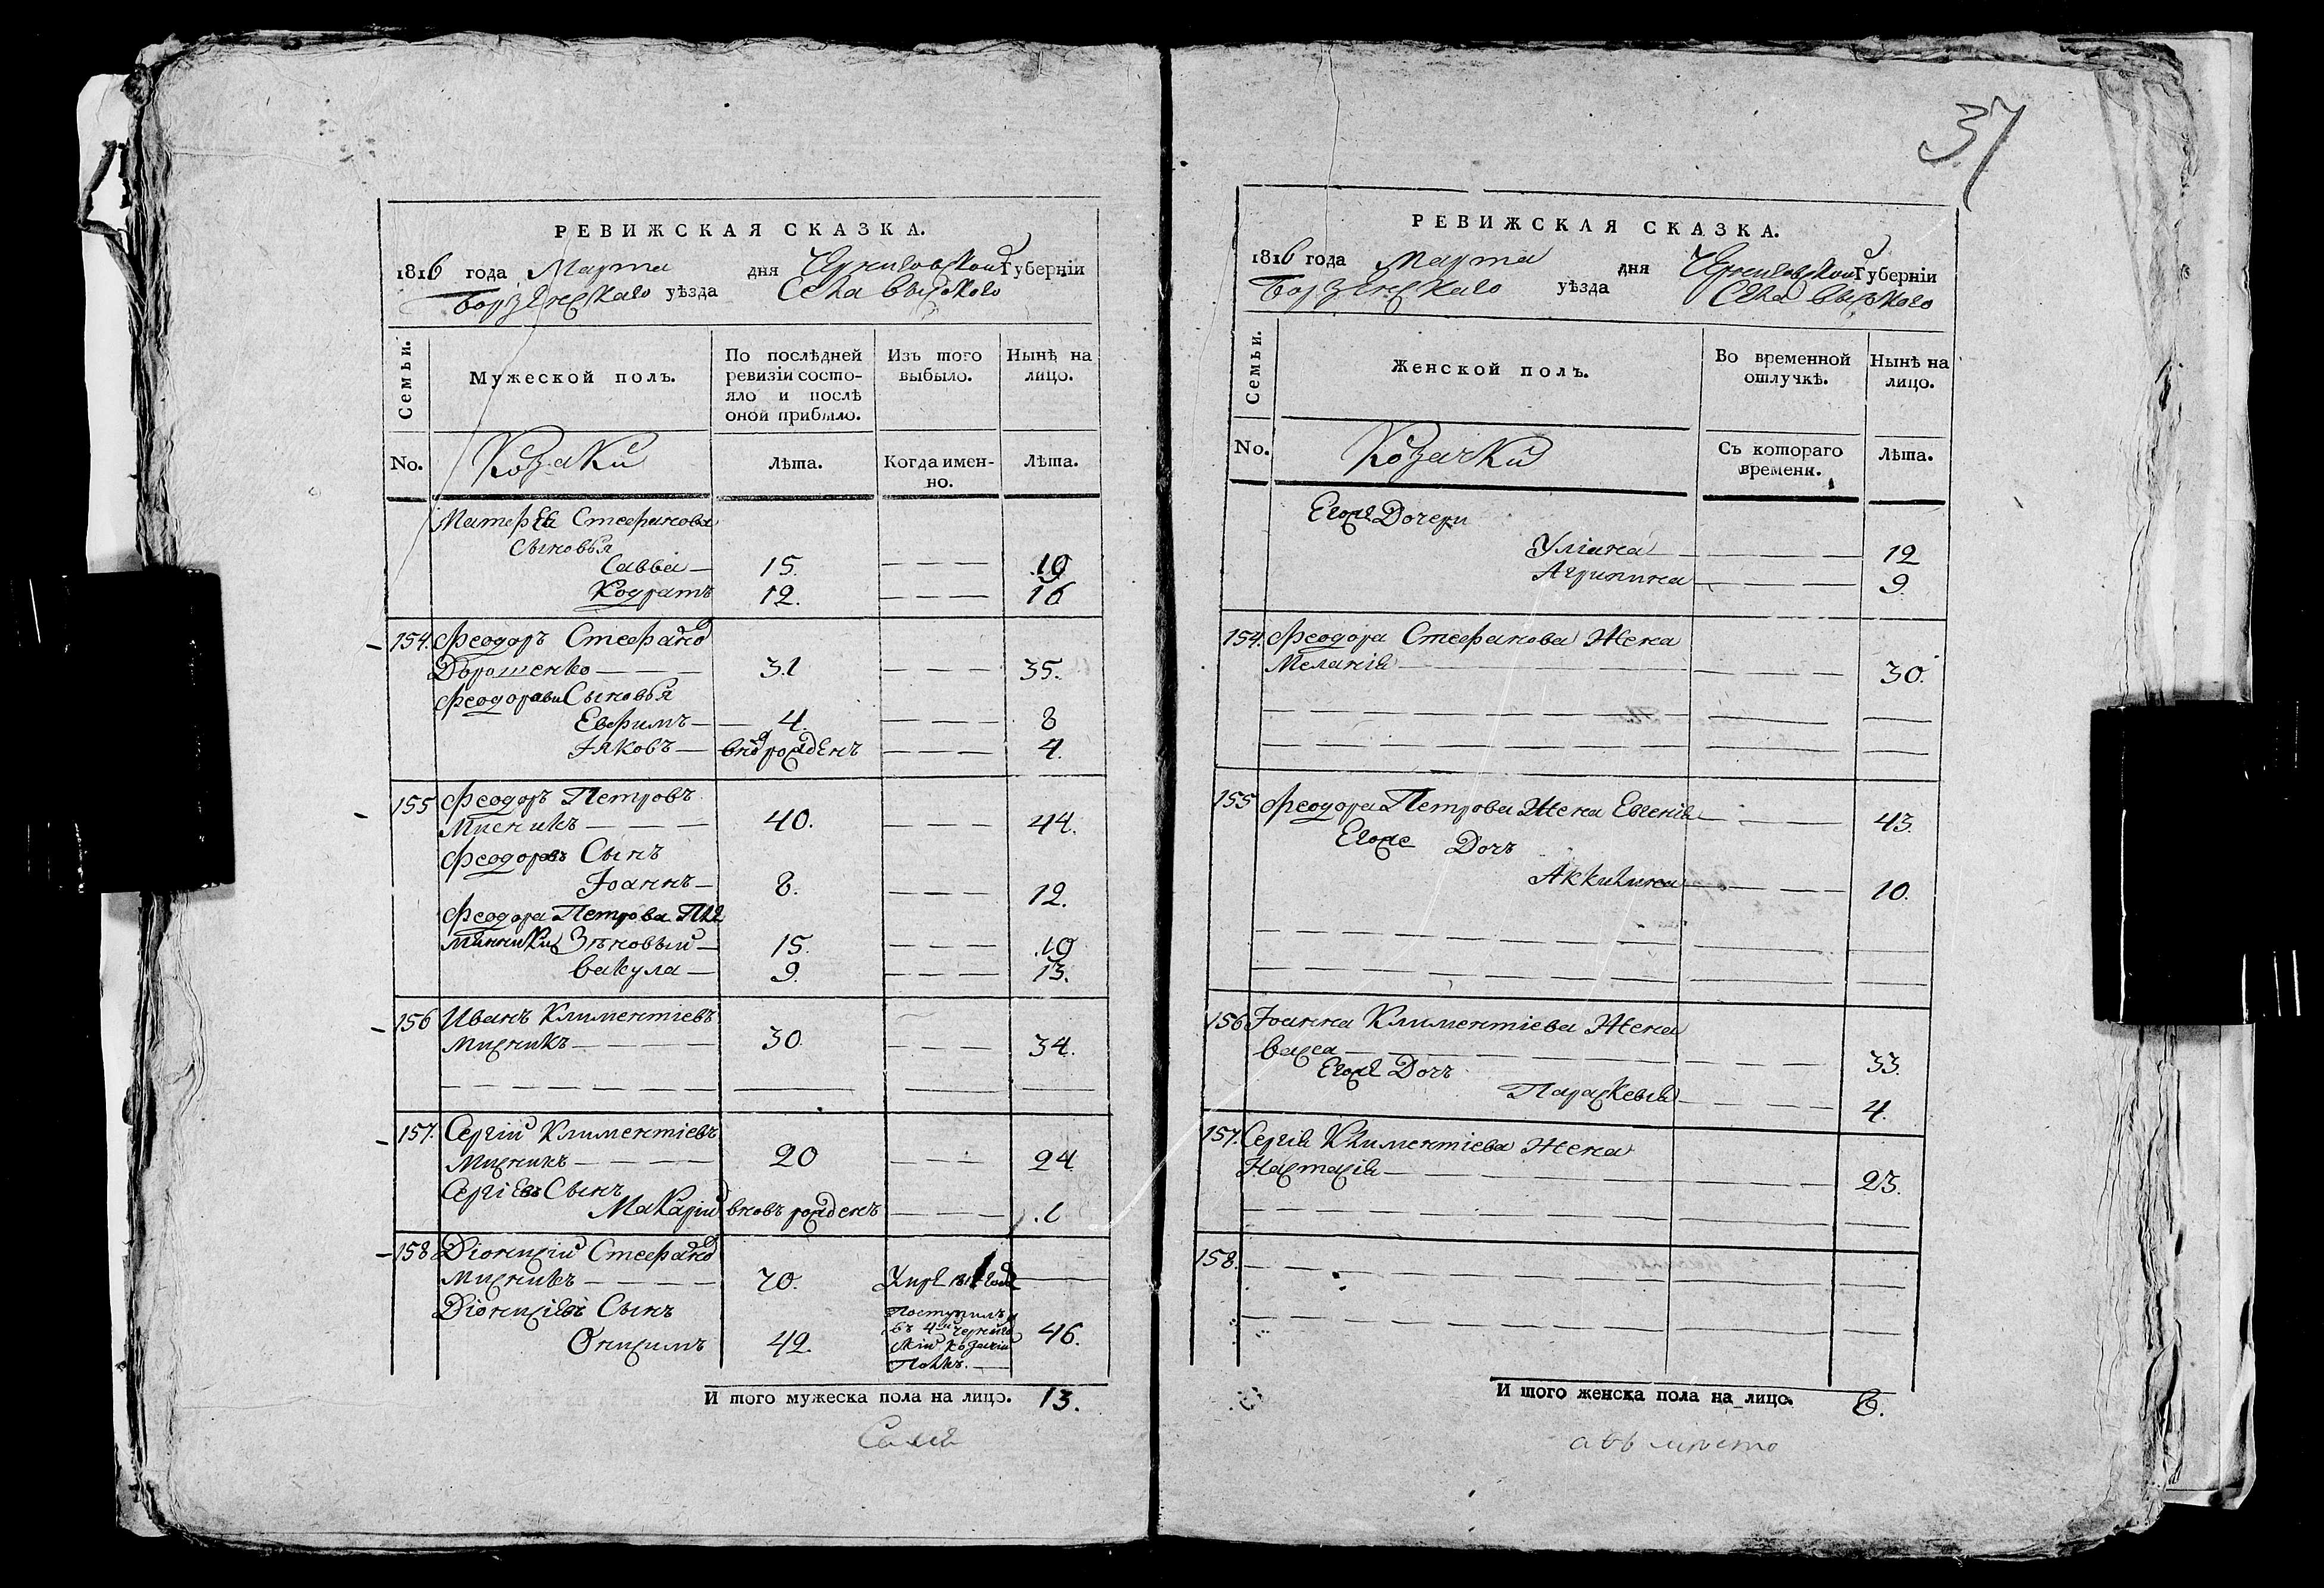 37
РЕВИЖСКАЯ СКАЗКА.
1816 года Марта дня Черниговской Губерніи
Борзенскаго уѣзда Села
Семьи.
Мужеской полъ.
По послѣдней ревизіи состо-
яло и послѣ
оной прибыло.
Изъ того
выбыло.
Нынѣ на
лицо.
No.
Козаки
Лѣта.
Когда имен-
но.
Лѣта.
Стефанова
Сыновья
Савва 15. 19
Кодратъ 12. 16
154. Феодоръ Стефановъ
Дорошенко 31 35.
Феодорови Сыновья
Евфимъ 4. 8
Іяковъ вновь рожденъ 4.
155 Феодоръ Петровъ
Мисникъ 40. 44.
Феодоровъ Сынъ
Іоаннъ 8. 12.
Феодора Петрова Пле
мянники Зѣновый 15. 19
Вакула 9. 13.
156 Иванъ Климентіевъ
Мисникъ 30 34.
157. Сергій Климентіевъ
Мисникъ 20 24
Сергіевъ Сынъ
Макарій вновь рожденъ 1
158 Діонисій Стефановъ
Мисникъ 70. года
Діонисіевъ Сынъ
Онисимъ 42. Поступилъ
въ 4й Чернигов
скій козачій
Полкъ. 46.
И того мужеска пола на лицо. 13.
РЕВИЖСКАЯ СКАЗКА.
1816 года Марта дня Черниговской Губерніи
Борзенскаго уѣзда Села
Семьи.
Женской полъ.
Во временной
отлучкѣ.
Нынѣ на
лицо.
No.
Козачки
Съ котораго
времени.
Лѣта.
Егоже Дочери
Уліана 12
Агрипина 9.
154. Феодора Стефанова Жена
Меланія 30.
155 Феодора Петрова Жена Евгенія 43.
Егоже Дочъ
Аккилина 10.
156 Іоанна Климентіева Жена
Васса 33.
Егоже Дочъ
Параскевія 4.
157. Сергія Климентіева Жена
Настасія 23.
158.
И того женска пола на лицо. 8.